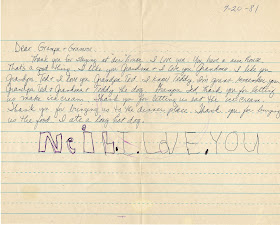 9-20-81
Dear Grampa + Gramma.
Thank you for staying at our house. I love you. You have a nice house.
Thats a good thing. I like you Grandma + I like you Grandma. I like you
Grandpa Ted + I love you Grandpa Ted. I know Teddy. I'm gonna remember you
Grandpa Ted + Grandma + Teddy the dog. Grampa Ted, thank you for letting
us make ice cream. Thank you for letting us eat the ice cream.
Thank you for bringing us to the dinner place. Thank you for bringing
us the food. I ate a long hot dog.
NeIL. I. LovE. YOU